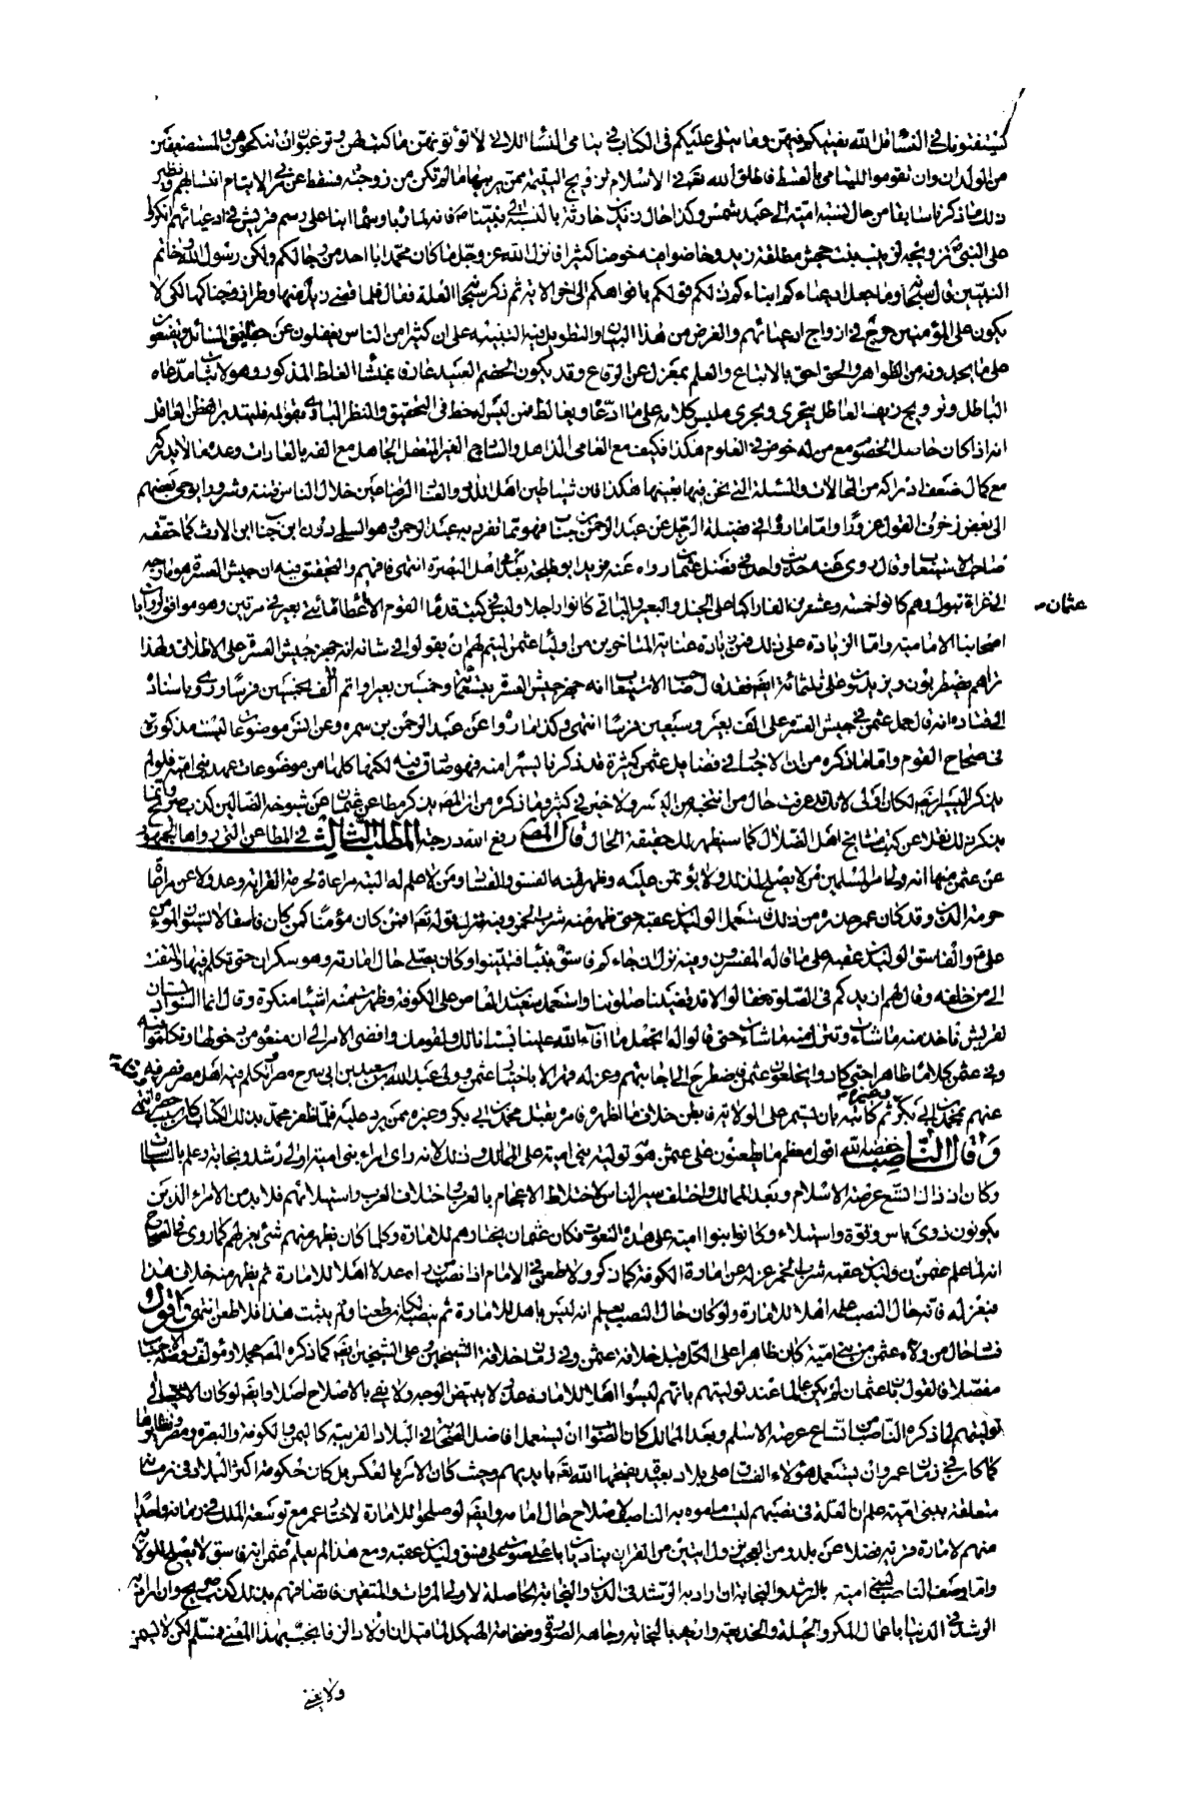 يستفتونك في النساء قل الله يفتيكم فيهن وما يتلى عليكم في الكتاب في يتامى النساء اللاتي لا تؤتونهن ما كتب لهن وترغبون ان تنكحوهن والمستضعفين
من الولدان وان تقوموا لليتامى بالقسط فاطلق الله تعالى في الاسلام تزويج اليتيمة ممن يربيها ما لم تكن من زوجته وسقط عن بني الايتام انتسابهم ونظير
ذلك ما ذكرنا سابقا من حال نسبة امية الى عبد شمس وكذا حال زيد بن حارثة بالنسبة الى نبينا ص فانه لما رباه وسماه ابنا على رسم قريش في ادعيائهم انكروا
على النبي ص تزويجه لزينب بنت جحش مطلقة زيد وخاضوا فيه خوضا كثيرا فانزل الله عز وجل ما كان محمد ابا احد من رجالكم ولكن رسول الله وخاتم
النبيين قال سبحانه وما جعل ادعياءكم ابناءكم ذلكم قولكم بافواهكم الى اخر الاية ثم ذكر سبحانه العلة فقال فلما قضى زيد منها وطرا زوجناكها لكي لا
يكون على المؤمنين حرج في ازواج ادعيائهم والغرض من هذا البيان والتطويل فيه التنبيه على ان كثيرا من الناس يغفلون عن حقايق المسائل ويقنعون
على ما يجدونه من الظواهر والحق احق بالاتباع والعلم بمعزل عن الرقاع وقد يكون الخصم العنيد عارفا بمنشأ الغلط المذكور وهو لاثبات مدعاه
الباطل وترويج زيفه العاطل يتحرى ويجري ملبس كلامه على ما ادعاه ويغالط من ليس له خط في التحقيق والنظر
انه اذا كان حاصل الخصوم مع من له خوض في العلوم هكذا فكيف مع العامي الذاهل والساجي الغير المتعقل الجاهل مع الفه بالعادات وعدم
مع كمال ضعف ادراكه من المحالات والمسئلة التي نحن فيها بعينها هكذا فان شياطين اهل الضلال
الى بعض زخرف القول غرورا واما ما رواه في فضيلة الرجل عن عبد الرحمن بن خباب فهو مما تفرد به عبد الرحمن وهو السلمي دون ابن خباب ابن الارت كما حققه
صاحب الاستيعاب وقال روى عنه حديث واحد في فضل عثمان رواه عنه فرقد ابو طلحة يعد في اهل البصرة انتهى فافهم والتحقيق فيه ان جيش العسرة هو ما توجه
الى غزاة تبوك وهم كانوا خمسة وعشرين الفا راكبا على الخيل والبعير والباقي كانوا رجلا وليس في كتب قدماء القوم الا اعطاء مأتي بعير في مرتين وهو موافق لروايات
عثمان
اصحابنا الامامية واما الزيادة على ذلك فمن زيادة عناية المتاخرين من اولياء عثمان ليتم لهم ان يقولوا في شانه انه جهز جيش العسرة على الاطلاق ولهذا
تراهم يضطربون ويزيدون على ثلثمائة ايضا فقد قال صاحب الاستيعاب انه جهز جيش العسرة بتسعمائة وخمسين بعيرا واتم الالف بخمسين فرسا وروى باسناده
الى قتادة انه قال حمل عثمان في جيش العسرة على الف بعير وسبعين فرسا انتهى وكذا ما رواه عن عبد الرحمن بن سمرة وعن انس موضوعات ليست مذكورة
في صحاح القوم واما ما ذكره من ان الاخبار في فضائل عثمان كثيرة قد ذكرنا يسيرا منه فهو صادق فيه لكنها كلها من موضوعات عهد بني امية فلو لم
يذكر اليسير ايضا لكان اولى لانك قد عرفت حال من انتخبه من اليسير ولا خير في كثير وما ذكره من ان المصنف يذكر مطاعن عثمان عن شيوخه الضالين كذب صريح وانما
يذكر ذلك نقلا عن كتب مشايخ اهل الضلال كما سنظهر لك حقيقة الحال قال المصنف رفع الله درجته المطلب الثالث في المطاعن التي رواها الجمهور
عن عثمان منها انه ولى امر المسلمين من لا يصلح لذلك ولا يؤتمن عليه وظهر منه الفسق والفساد ومن لا علم له البتة مراعاة لحرمة القرابة وعدولا عن مراعاة
حرمة الدين وقد كان عمر حذره من ذلك فاستعمل الوليد بن عقبة حتى ظهر منه شرب الخمر وفيه نزل قوله تعالى افمن كان مؤمنا كمن كان فاسقا لا يستوون المؤمن
علي ع والفاسق الوليد بن عقبة على ما قاله المفسرون وفيه نزل ان جاءكم فاسق بنبأ فتبينوا وكان يصلي حال امارته وهو سكران حتى تكلم فيها والتفت
الى من خلفه وقال لهم ازيدكم في الصلوة فقالوا لا قد قضينا صلوتنا واستعمل سعيد بن العاص على الكوفة وظهرت منه اشياء منكرة وقال انما السواد بستان
لقريش فاخذ منه ما شاءت وتترك منه ما شاءت حتى قالوا له اتجعل ما افاء الله علينا بستانا لك ولقومك وافضى الامر الى ان منعوه من دخولها وتكلموا فيه
وفي عثمان كلاما ظاهرا حتى كادوا يخلعون عثمان فاضطر حينئذ الى اجابتهم وعزله قهرا لا باختيار عثمان وولى عبد الله بن سعد بن ابي سرح مصر وتكلم فيه اهل مصر فصرفه
عنهم بمحمد بن ابي بكر ثم كاتبه بان يستمر على الولاية فابطن خلاف ما اظهره فامر بقتل محمد بن ابي بكر وغيره ممن يرد عليه فلما ظفر محمد بذلك الكتاب كان سبب حصره انتهى
وقال الناصب خفضه الله اقول معظم ما يطعنون على عثمان هو توليته بني امية على الممالك وذلك لانه راى امراء بني امية اولي رشد ونجابة وعلم بالسياسات
وكان اذ ذاك اتسع عرصة الاسلام وبعد الممالك واختلف سير الناس لاختلاط الاعجام بالعرب واختلاف العرب واستيلائهم فلا بد من الامراء الذين
يكونون ذوي باس وقوة واستيلاء وكانوا بنو امية على هذه النعوت فكان عثمان يختارهم للامارة وكلما كان يظهر منهم شئ يعزلهم كما روى في الصحاح
انه لما علم عثمان ان وليد بن عقبة شرب الخمر عزله عن امارة الكوفة كما ذكر ولا طعن في الامام اذا نصب من يراه عدلا اهلا للامارة ثم يظهر منه خلاف هذا
فيعزله فانه حال النصب علمه اهلا للامارة ولو كان حال النصب يعلم انه ليس باهل للامارة ثم ينصبه لكان طعنا ولم يثبت هذا فلا طعن انتهى واقول
فساد حال من ولاه عثمان من بني امية كان ظاهرا على الكل قبل خلافة عثمان وفي زمان خلافة الشيخين وعلى الشيخين ايضا كما ذكره المصنف
مفصلا فالقول بان عثمان لم يكن عالما عند توليتهم بانهم ليسوا اهلا للامارة
توليتهم لما ذكره الناصب من اتساع عرصة الاسلام وبعد الممالك كان الصواب ان يستعمل افاضل الصحابة في البلاد القريبة كاليمن والكوفة والبصرة ومصر ونظايرها
كما كان في زمان عمر وان يستعمل هؤلاء الفساق على بلاد بعيد يفتحها الله تعالى بايديهم وحيث كان الامر بالعكس بل كان حكومة اكثر البلاد في زمانه
متعلقة ببني امية علم ان العلة في نصبهم ليست ما موه به الناصب لاصلاح حال امامه وايضا لو صلحوا للامارة لاختار عمر مع توسعة الملك في زمانه واحدا
منهم لامارة قرية فضلا عن بلد ومن العجب نزول ايتين من القران يناديان باعلى صوت على فسق وليد بن عقبة ومع هذا لم يعلم عثمان انه فاسق لا يصلح للولاية
واما وصف الناصب لبني امية بالرشد والنجابة ان اراد به الرشد في الدين والنجابة الحاصلة لاولي المروات والمتقين فاتصافهم بذلك كذب صريح وان اراد به
الرشد في الدنيا باعمال المكر والحيلة والخديعة واراد بالنجابة وجاهة الصورة وضخامة الهيكل لما قيل ان اولاد الزنا نجب فهذا المعنى مسلم لكن لا يسمن
ولا يغني